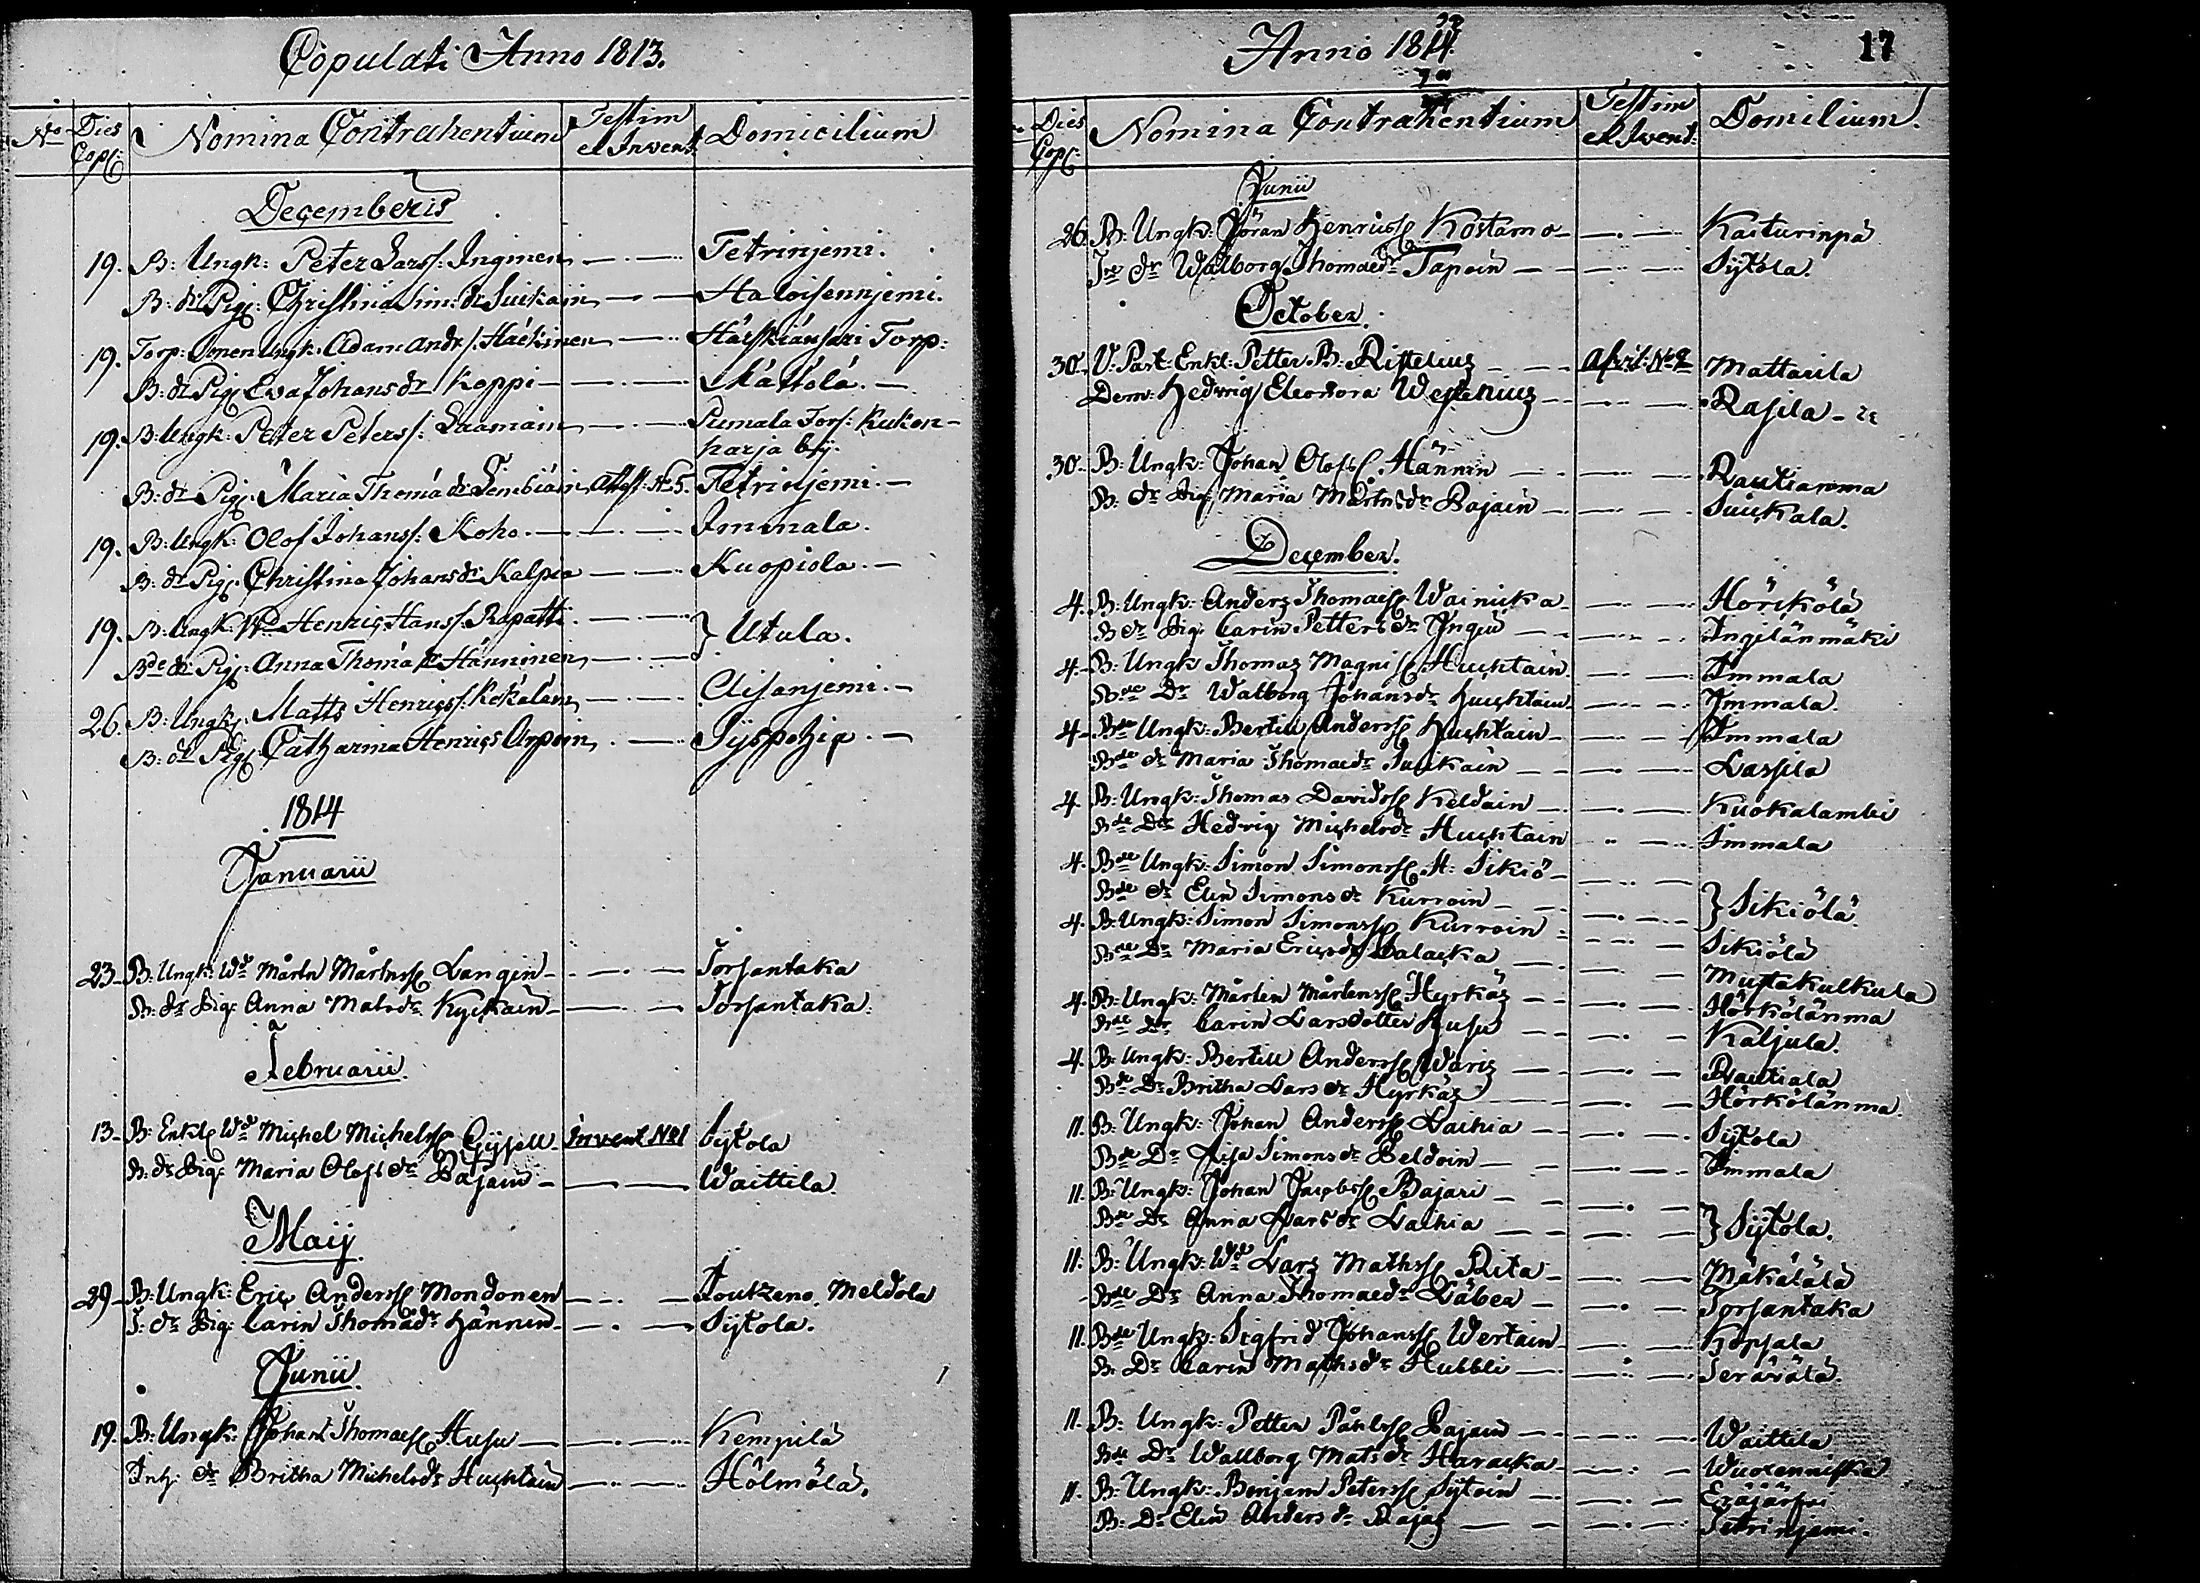 Copulati Anno 1813.
No Dies Cop: Nomina Contrahentium Testim et Invent: Domicilium
Decemberis
19. B: Ungk: Peter Larss: Inginen Tetrinjemi.
B: dr Pig: Christina Sim: dr Suikain Haloisennjemi.
19. Torp: Sonen Ungk: Adam Andr s: Häckinen Härskiänsari Torp:
B: dr Pig: Eva Johans dr Koppi Mättölä.
19. B: Ungk: Peter Peterss: Laamain Pumala Kukon-
harja by.
B: dr Pig: Maria Thomä dr Lembiäin Attest: No 5. Tetrinjemi.
19. B: Ungk: Olof Johanss: Koho. Immala.
B: dr Pig: Christina Johans dr Kalpio Kuopiola.
19. B: Ungk: Henric Hanss: Rapatti } Utula.
Bde dr Pig: Anna Thomä dr Hänninen
26. B: Ungk: Matts Henricss: Kekäläin
B: dr Pig: Catharina Henrics Arpoin Syyspohja
1814
Januarii
23 B: Ungk: Wd Mårtn Mårtnss Langin Torsantaka
B: dr Pig: Anna Mats dr Kyckain Torsantaka.
Februarii.
13 B: Enkl: Wd Michel Michelss Invent No 1 Sytola
B: dr Pig: Maria Olofs dr Bajain Waittila.
Maij
29 B: Ungk: Eric Anderss Mondonen Joutzeno Meldola
I: dr Pig: Carin Thomä dr Hännin Sytola.
Junii
19. B: Ungk: Johan Thomass Husu Kempilä
Inh: dr Britha Michels dr Huchtain Hölmölä.
Anno 1814.
17
Dies Cop: Nomina Contrahentium Testim et Ivent: Domilium.
Junii
26 B: Ungk: Jöran Henricss Kostamo Kaiturinpä
dr Walborg Thomae dr Tapoin Sytola.
October.
30 V: Past: Enkl: Petter B: Ristelius Afvit: No 2 Mattarila
Dem: Hedwig Eleonora Westenius Rasila
30 B: Ungk: Johan Olofss Hännin Rautianma
B: dr Pig: Maria Mårtns dr Rajain Suickala.
December.
4. B: Ungk: Anders Thomass Wainicka Hörckölä
B dr Pig: Carin Petters dr Ingin Ingilänmäki
4. B: Ungk Thomas Magni ss Huchtain Immala
Bde Dr Walborg Johans dr Huchtain Immala.
4. Bde Ungk: Bertill Anderss Huchtain Immala
Bde dr Maria Thomae dr Suickain Lassila
4. B: Ungk: Thomas Davidss Keldain Kuokalambi
Bde Dr Hedvig Michels dr Huchtain Immala
4. Bde Ungk: Simon Simonss H: Sikiö } Sikiölä.
Bde dr Elin Simons dr Kurroin
4. B: Ungk: Simon Simonss Kurroin Sikiölä
Bde Dr Maria Erics dr Salacka Mustakulkula
4. B: Ungk: Mårten Mårtenss Hyrkäs Hörkölänma
Bde Dr Carin Larsdotter Husu Kaljula.
4. B: Ungk: Bertill Anderss Waris Rautiala
Bde Dr Britha Lars dr Hyrkäs Hörkölänma
11. B: Ungk: Johan Anderss Laihia Sytola
Bde Dr Aisa Simons dr Beldoin Immala
11. B: Ungk: Johan Jacobss Bajari } Sytola.
Bde Dr Anna Lars dr Laihia
11. B: Ungk: Wd Lars Mathss Rita Mäkälälä
Bde Dr Anna Thomae dr Torsantaka
11. Bde Ungk: Sigfrid Johanss Wertain Kopsala
B: Dr Carin Maths dr Hubbli Serävälä.
11. B: Ungk: Petter Påhlss Bajain Waittila
Bde Dr Wallborg Mats dr Haracka Wuoxenniska
11. B: Ungk: Benjam Peterss Sytoin Eräjärfwi
B: Dr Elin Anders dr Rajas Tetrinjemi.